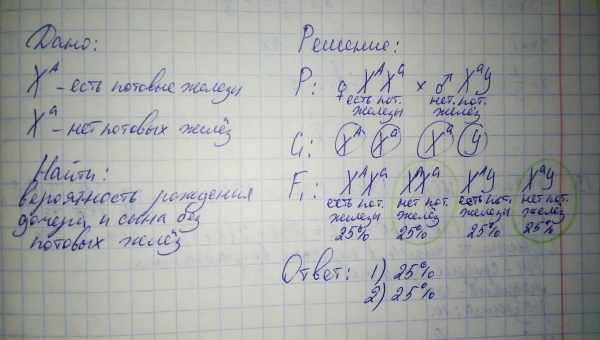 Дано:
X^A – есть потовые железы
X^a – нет потовых желёз
Найти:
вероятность рождения
дочери и сына без
потовых желёз
Решение:
P: ♀ X^A X^a × ♂ X^a y
есть пот. нет. пот.
железы желёз
G: X^A X^a X^a y
F₁: X^A X^a X^a X^a X^A y X^a y
есть пот. нет пот. есть пот. нет пот.
железы желёз железы желёз
25% 25% 25% 25%
Ответ: 1) 25%
2) 25%